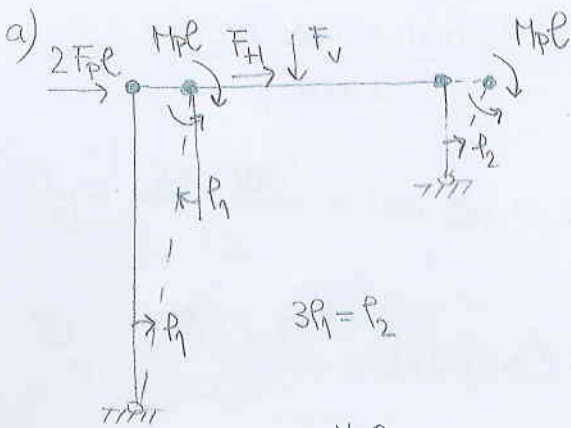 a)
2Fpl Mpl FH Fv Mpl
φ2
φ1
φ1 3φ1 = φ2